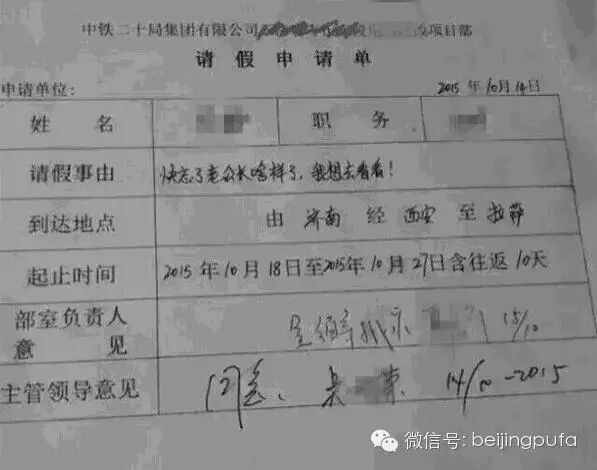 中铁二十局集团有限公司 改项目部
请假申请单
申请单位： 2015年10月14日
姓名 职务
请假事由 快忘了老公长啥样了，我想去看看！
到达地点 由济南经西安至拉萨
起止时间 2015年10月18日至2015年10月27日含往返10天
部室负责人
意见 15/10
主管领导意见 同意. 14/10-2015
微信号: beijingpufa